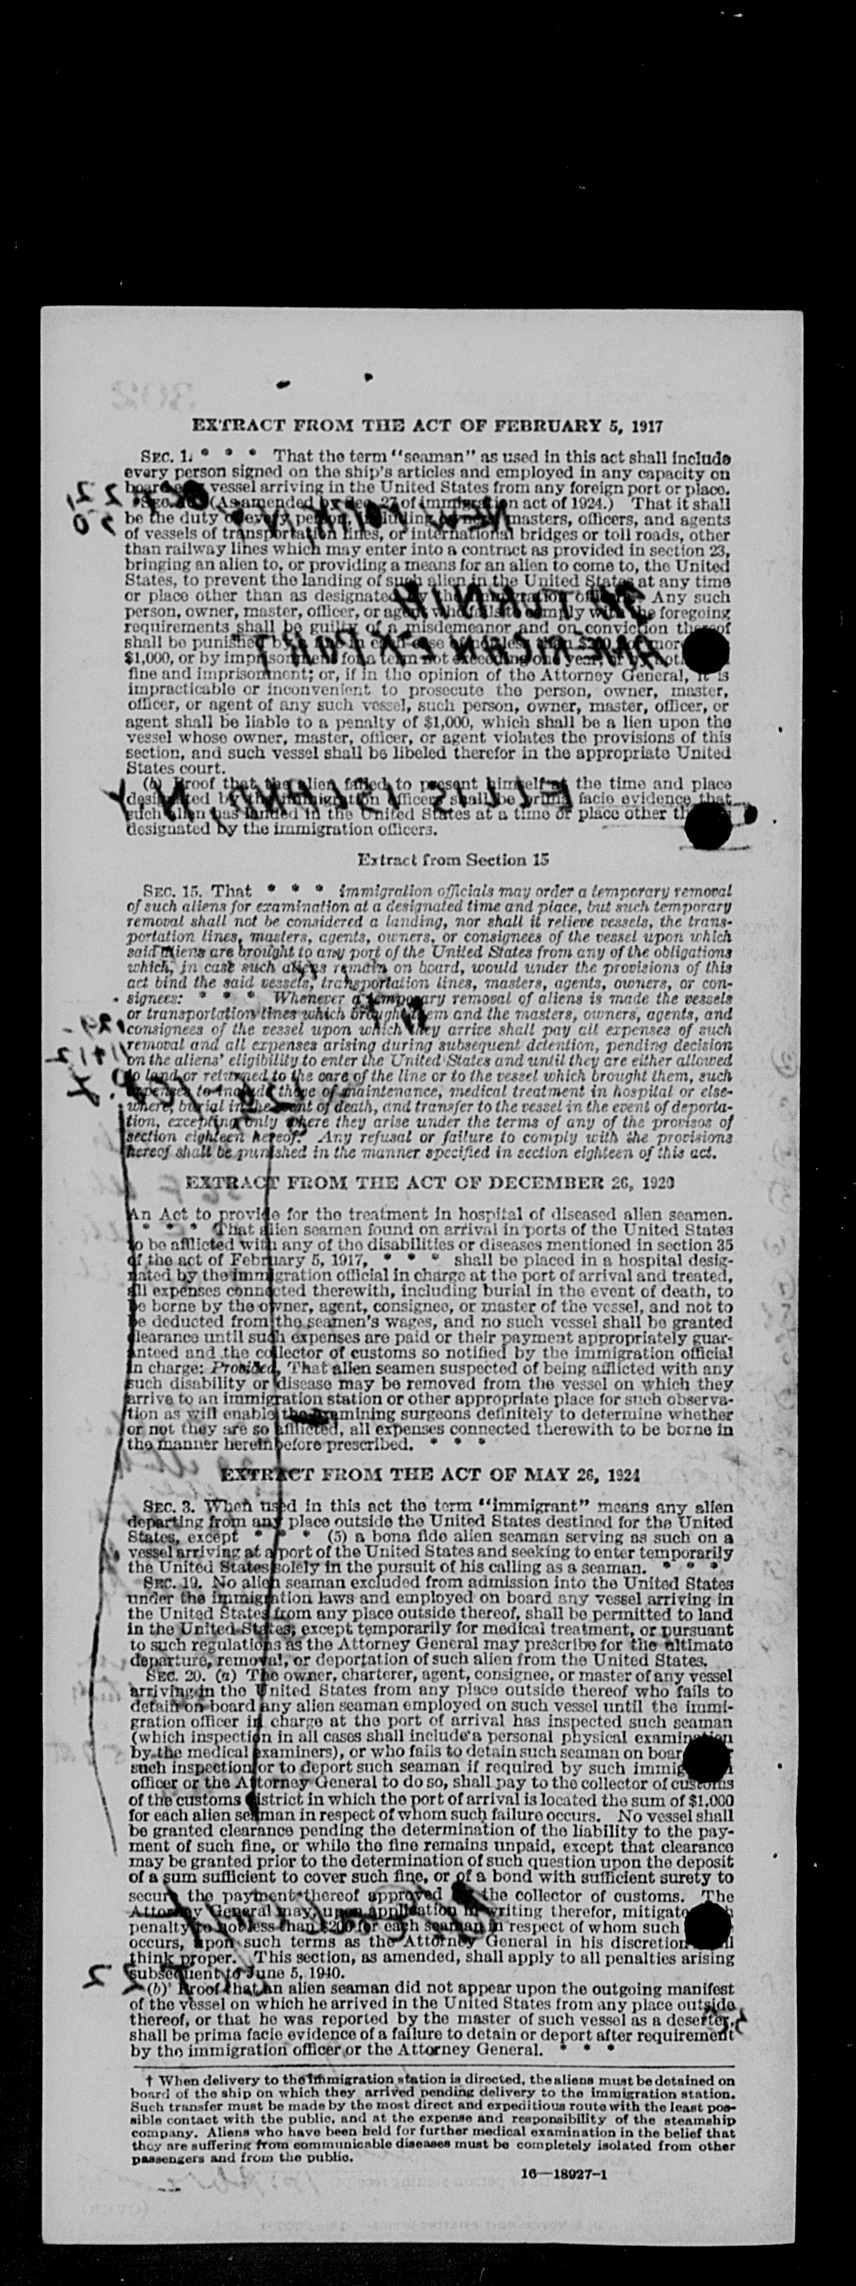 EXTRACT FROM THE ACT OF FEBRUARY 5, 1917
SEC. 1. * * * That the term "seaman" as used in this act shall include
every person signed on the ship's articles and employed in any capacity on
board any vessel arriving in the United States from any foreign port or place.
(As amended by Sec. 27 of immigration act of 1924.) That it shall
be the duty of every person, including masters, officers, and agents
of vessels of transportation lines, or international bridges or toll roads, other
than railway lines which may enter into a contract as provided in section 23,
bringing an alien to, or providing a means for an alien to come to, the United
States, to prevent the landing of such alien in the United States at any time
or place other than as designated by the immigration officers. Any such
person, owner, master, officer, or agent who fails to comply with the foregoing
requirements shall be guilty of a misdemeanor and on conviction thereof
shall be punished by a fine in each case of not less than $200 nor more
$1,000, or by imprisonment for a term not exceeding one year, or by both
fine and imprisonment; or, if in the opinion of the Attorney General, it is
impracticable or inconvenient to prosecute the person, owner, master,
officer, or agent of any such vessel, such person, owner, master, officer, or
agent shall be liable to a penalty of $1,000, which shall be a lien upon the
vessel whose owner, master, officer, or agent violates the provisions of this
section, and such vessel shall be libeled therefor in the appropriate United
States court.
(b) Proof that the alien failed to present himself at the time and place
designated by the immigration officers shall be prima facie evidence that
such alien has landed in the United States at a time or place other
designated by the immigration officers.
Extract from Section 15
SEC. 15. That * * * immigration officials may order a temporary removal
of such aliens for examination at a designated time and place, but such temporary
removal shall not be considered a landing, nor shall it relieve vessels, the trans-
portation lines, masters, agents, owners, or consignees of the vessel upon which
said aliens are brought to any port of the United States from any of the obligations
which, in case such aliens remain on board, would under the provisions of this
act bind the said vessels, transportation lines, masters, agents, owners, or con-
signees: * * * Whenever a temporary removal of aliens is made the vessels
or transportation lines which brought them and the masters, owners, agents, and
consignees of the vessel upon which they arrive shall pay all expenses of such
removal and all expenses arising during subsequent detention, pending decision
on the aliens' eligibility to enter the United States and until they are either allowed
to land or returned to the care of the line or to the vessel which brought them, such
expenses to include those of maintenance, medical treatment in hospital or else-
where, burial in the event of death, and transfer to the vessel in the event of deporta-
tion, excepting only where they arise under the terms of any of the provisos of
section eighteen hereof. Any refusal or failure to comply with the provisions
hereof shall be punished in the manner specified in section eighteen of this act.
EXTRACT FROM THE ACT OF DECEMBER 26, 1920
An Act to provide for the treatment in hospital of diseased alien seamen.
* * * That alien seamen found on arrival in ports of the United States
to be afflicted with any of the disabilities or diseases mentioned in section 35
of the act of February 5, 1917, * * * shall be placed in a hospital desig-
nated by the immigration official in charge at the port of arrival and treated,
all expenses connected therewith, including burial in the event of death, to
be borne by the owner, agent, consignee, or master of the vessel, and not to
be deducted from the seamen's wages, and no such vessel shall be granted
clearance until such expenses are paid or their payment appropriately guar-
anteed and the collector of customs so notified by the immigration official
in charge: Provided, That alien seamen suspected of being afflicted with any
such disability or disease may be removed from the vessel on which they
arrive to an immigration station or other appropriate place for such observa-
tion as will enable the examining surgeons definitely to determine whether
or not they are so afflicted, all expenses connected therewith to be borne in
the manner hereinbefore prescribed. * * *
EXTRACT FROM THE ACT OF MAY 26, 1924
SEC. 3. When used in this act the term "immigrant" means any alien
departing from any place outside the United States destined for the United
States, except * * * (5) a bona fide alien seaman serving as such on a
vessel arriving at a port of the United States and seeking to enter temporarily
the United States solely in the pursuit of his calling as a seaman. * * *
SEC. 19. No alien seaman excluded from admission into the United States
under the immigration laws and employed on board any vessel arriving in
the United States from any place outside thereof, shall be permitted to land
in the United States, except temporarily for medical treatment, or pursuant
to such regulations as the Attorney General may prescribe for the ultimate
departure, removal, or deportation of such alien from the United States.
SEC. 20. (a) The owner, charterer, agent, consignee, or master of any vessel
arriving in the United States from any place outside thereof who fails to
detain on board any alien seaman employed on such vessel until the immi-
gration officer in charge at the port of arrival has inspected such seaman
(which inspection in all cases shall include a personal physical examination
by the medical examiners), or who fails to detain such seaman on board
such inspection or to deport such seaman if required by such immigration
officer or the Attorney General to do so, shall pay to the collector of customs
of the customs district in which the port of arrival is located the sum of $1,000
for each alien seaman in respect of whom such failure occurs. No vessel shall
be granted clearance pending the determination of the liability to the pay-
ment of such fine, or while the fine remains unpaid, except that clearance
may be granted prior to the determination of such question upon the deposit
of a sum sufficient to cover such fine, or of a bond with sufficient surety to
secure the payment thereof approved by the collector of customs. The
Attorney General may, upon application in writing therefor, mitigate such
penalty to not less than $200 for each seaman in respect of whom such
occurs, upon such terms as the Attorney General in his discretion shall
think proper. This section, as amended, shall apply to all penalties arising
subsequent to June 5, 1940.
(b) Proof that an alien seaman did not appear upon the outgoing manifest
of the vessel on which he arrived in the United States from any place outside
thereof, or that he was reported by the master of such vessel as a deserter,
shall be prima facie evidence of a failure to detain or deport after requirement
by the immigration officer or the Attorney General. * * *
† When delivery to the immigration station is directed, the aliens must be detained on
board of the ship on which they arrived pending delivery to the immigration station.
Such transfer must be made by the most direct and expeditious route with the least pos-
sible contact with the public, and at the expense and responsibility of the steamship
company. Aliens who have been held for further medical examination in the belief that
they are suffering from communicable diseases must be completely isolated from other
passengers and from the public.
16—18927-1